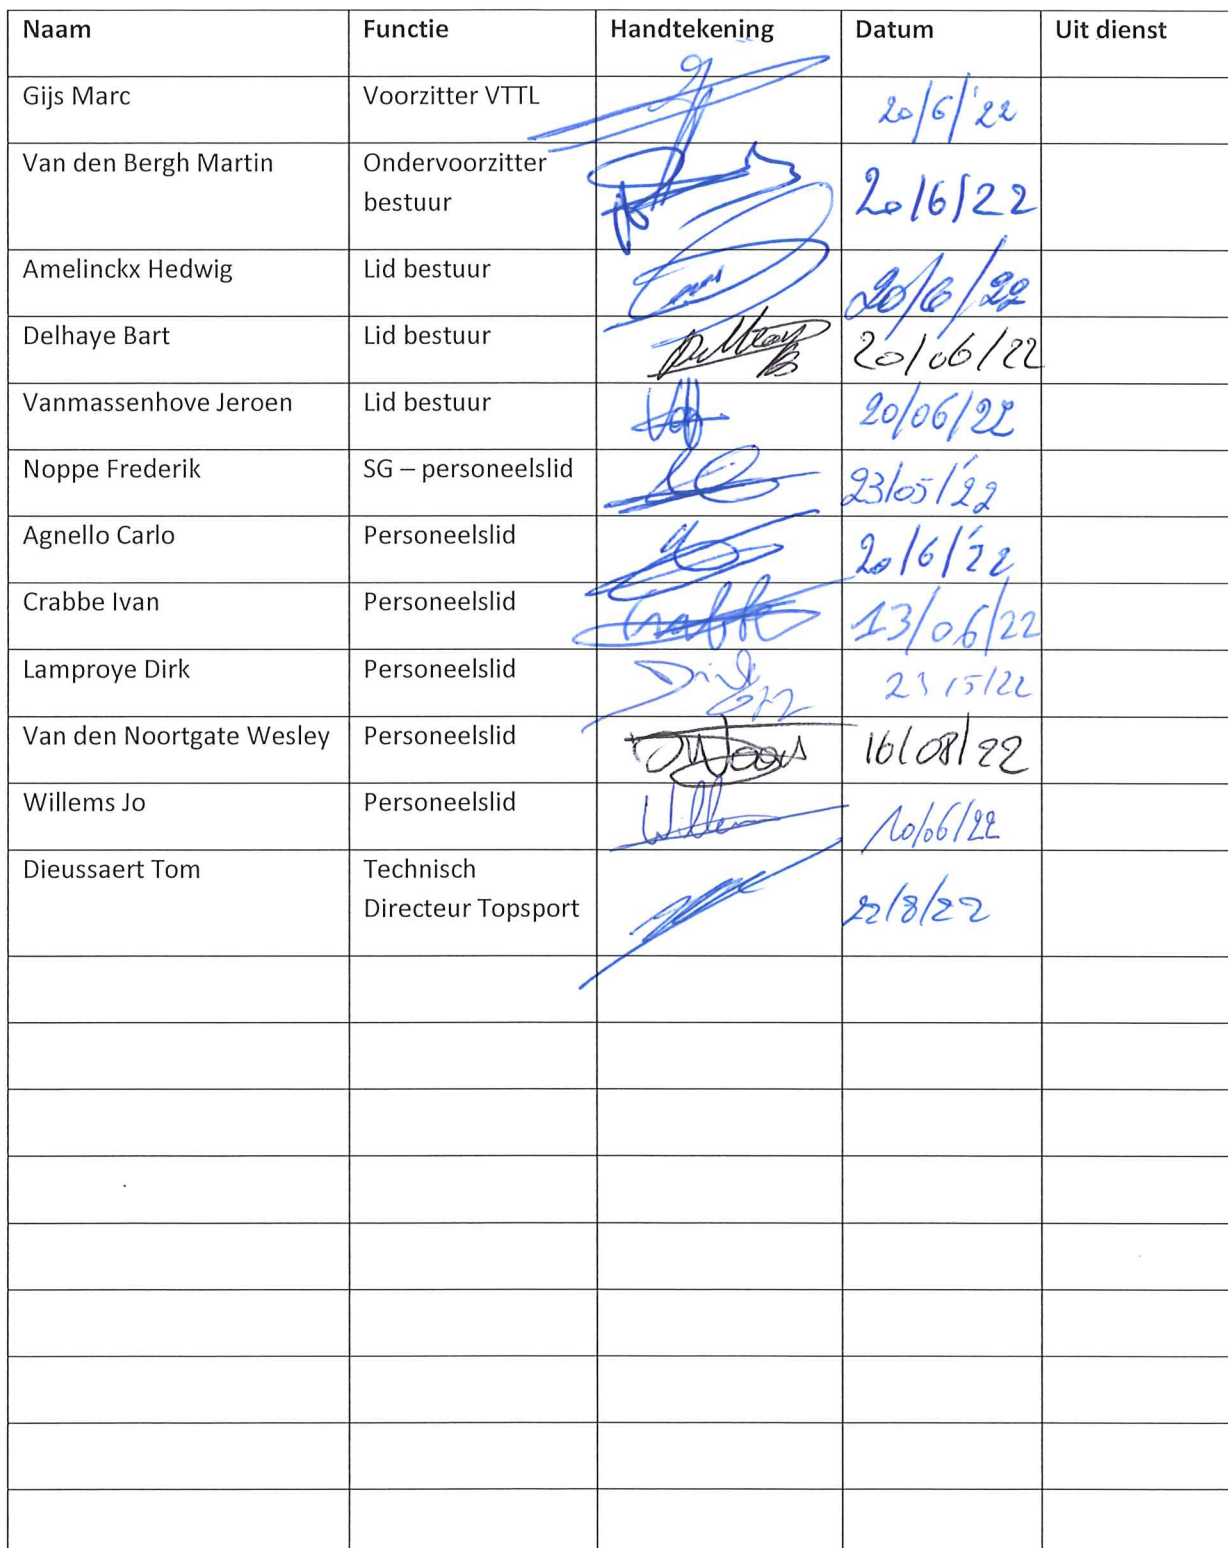 Naam Functie Handtekening Datum Uit dienst
Gijs Marc Voorzitter VTTL 20/6/'22
Van den Bergh Martin Ondervoorzitter 20/6/22
bestuur
Amelinckx Hedwig Lid bestuur 20/6/22
Delhaye Bart Lid bestuur 20/06/22
Vanmassenhove Jeroen Lid bestuur 20/06/22
Noppe Frederik SG – personeelslid 23/05/'22
Agnello Carlo Personeelslid 20/6/'22
Crabbe Ivan Personeelslid Crabbe 13/06/22
Lamproye Dirk Personeelslid Dirk 23/5/22
Van den Noortgate Wesley Personeelslid 16/08/22
Willems Jo Personeelslid Willems 10/06/22
Dieussaert Tom Technisch 22/8/22
Directeur Topsport